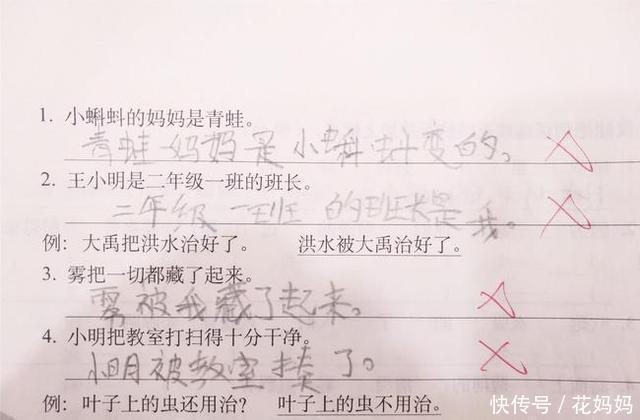 1. 小蝌蚪的妈妈是青蛙。
青蛙妈妈是小蝌蚪变的。
2. 王小明是二年级一班的班长。
二年级一班的班长是我。
例：大禹把洪水治好了。 洪水被大禹治好了。
3. 雾把一切都藏了起来。
雾被我藏了起来。
4. 小明把教室打扫得十分干净。
小明被教室揍了。
例：叶子上的虫还用治？ 叶子上的虫不用治.
快传号／花妈妈